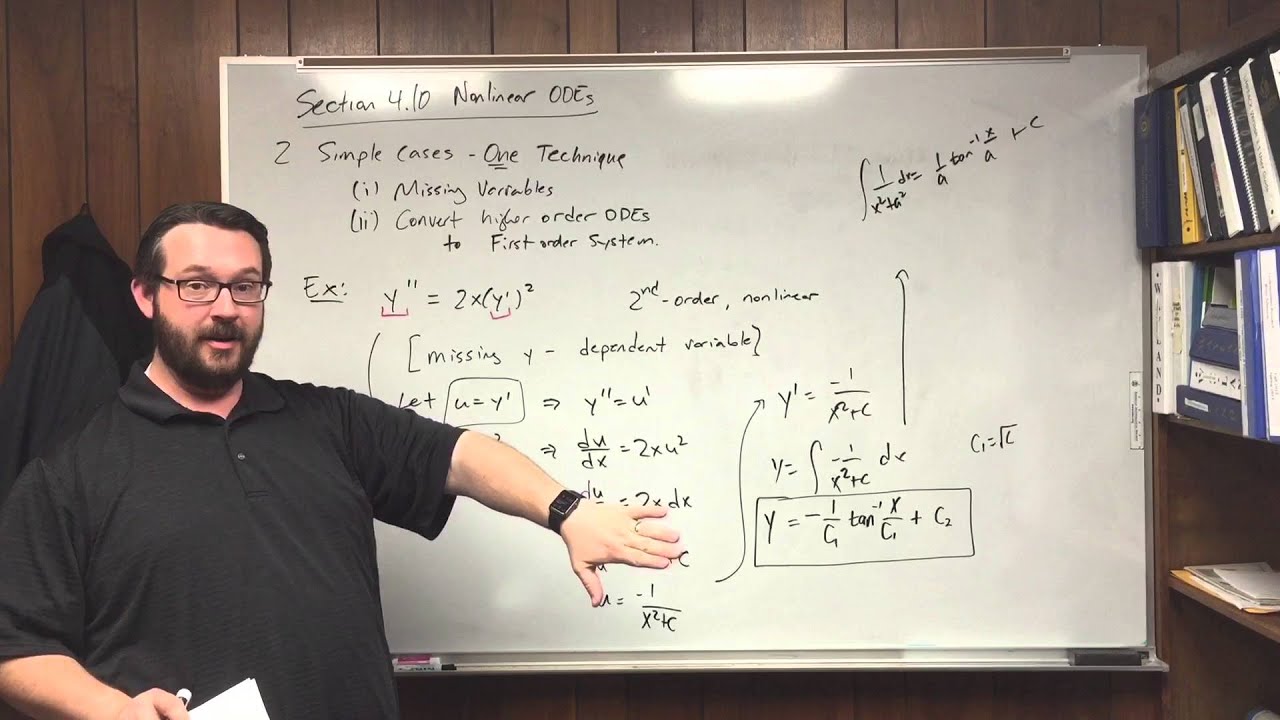 Section 4.10 Nonlinear ODEs
2 Simple Cases - One Technique
(i) Missing Variables
(ii) Convert higher order ODEs
to First order System.
∫ 1/(x²+a²) dx = 1/a tan⁻¹ x/a + C
Ex: y'' = 2x(y')² 2nd-order, nonlinear
[missing y - dependent variable]
Let u = y' ⇒ y'' = u'
⇒ du/dx = 2xu²
du = 2x dx
u = -1/(x²+C)
y' = -1/(x²+C)
y = ∫ -1/(x²+C) dx
C₁ = √C
y = -1/C₁ tan⁻¹ x/C₁ + C₂